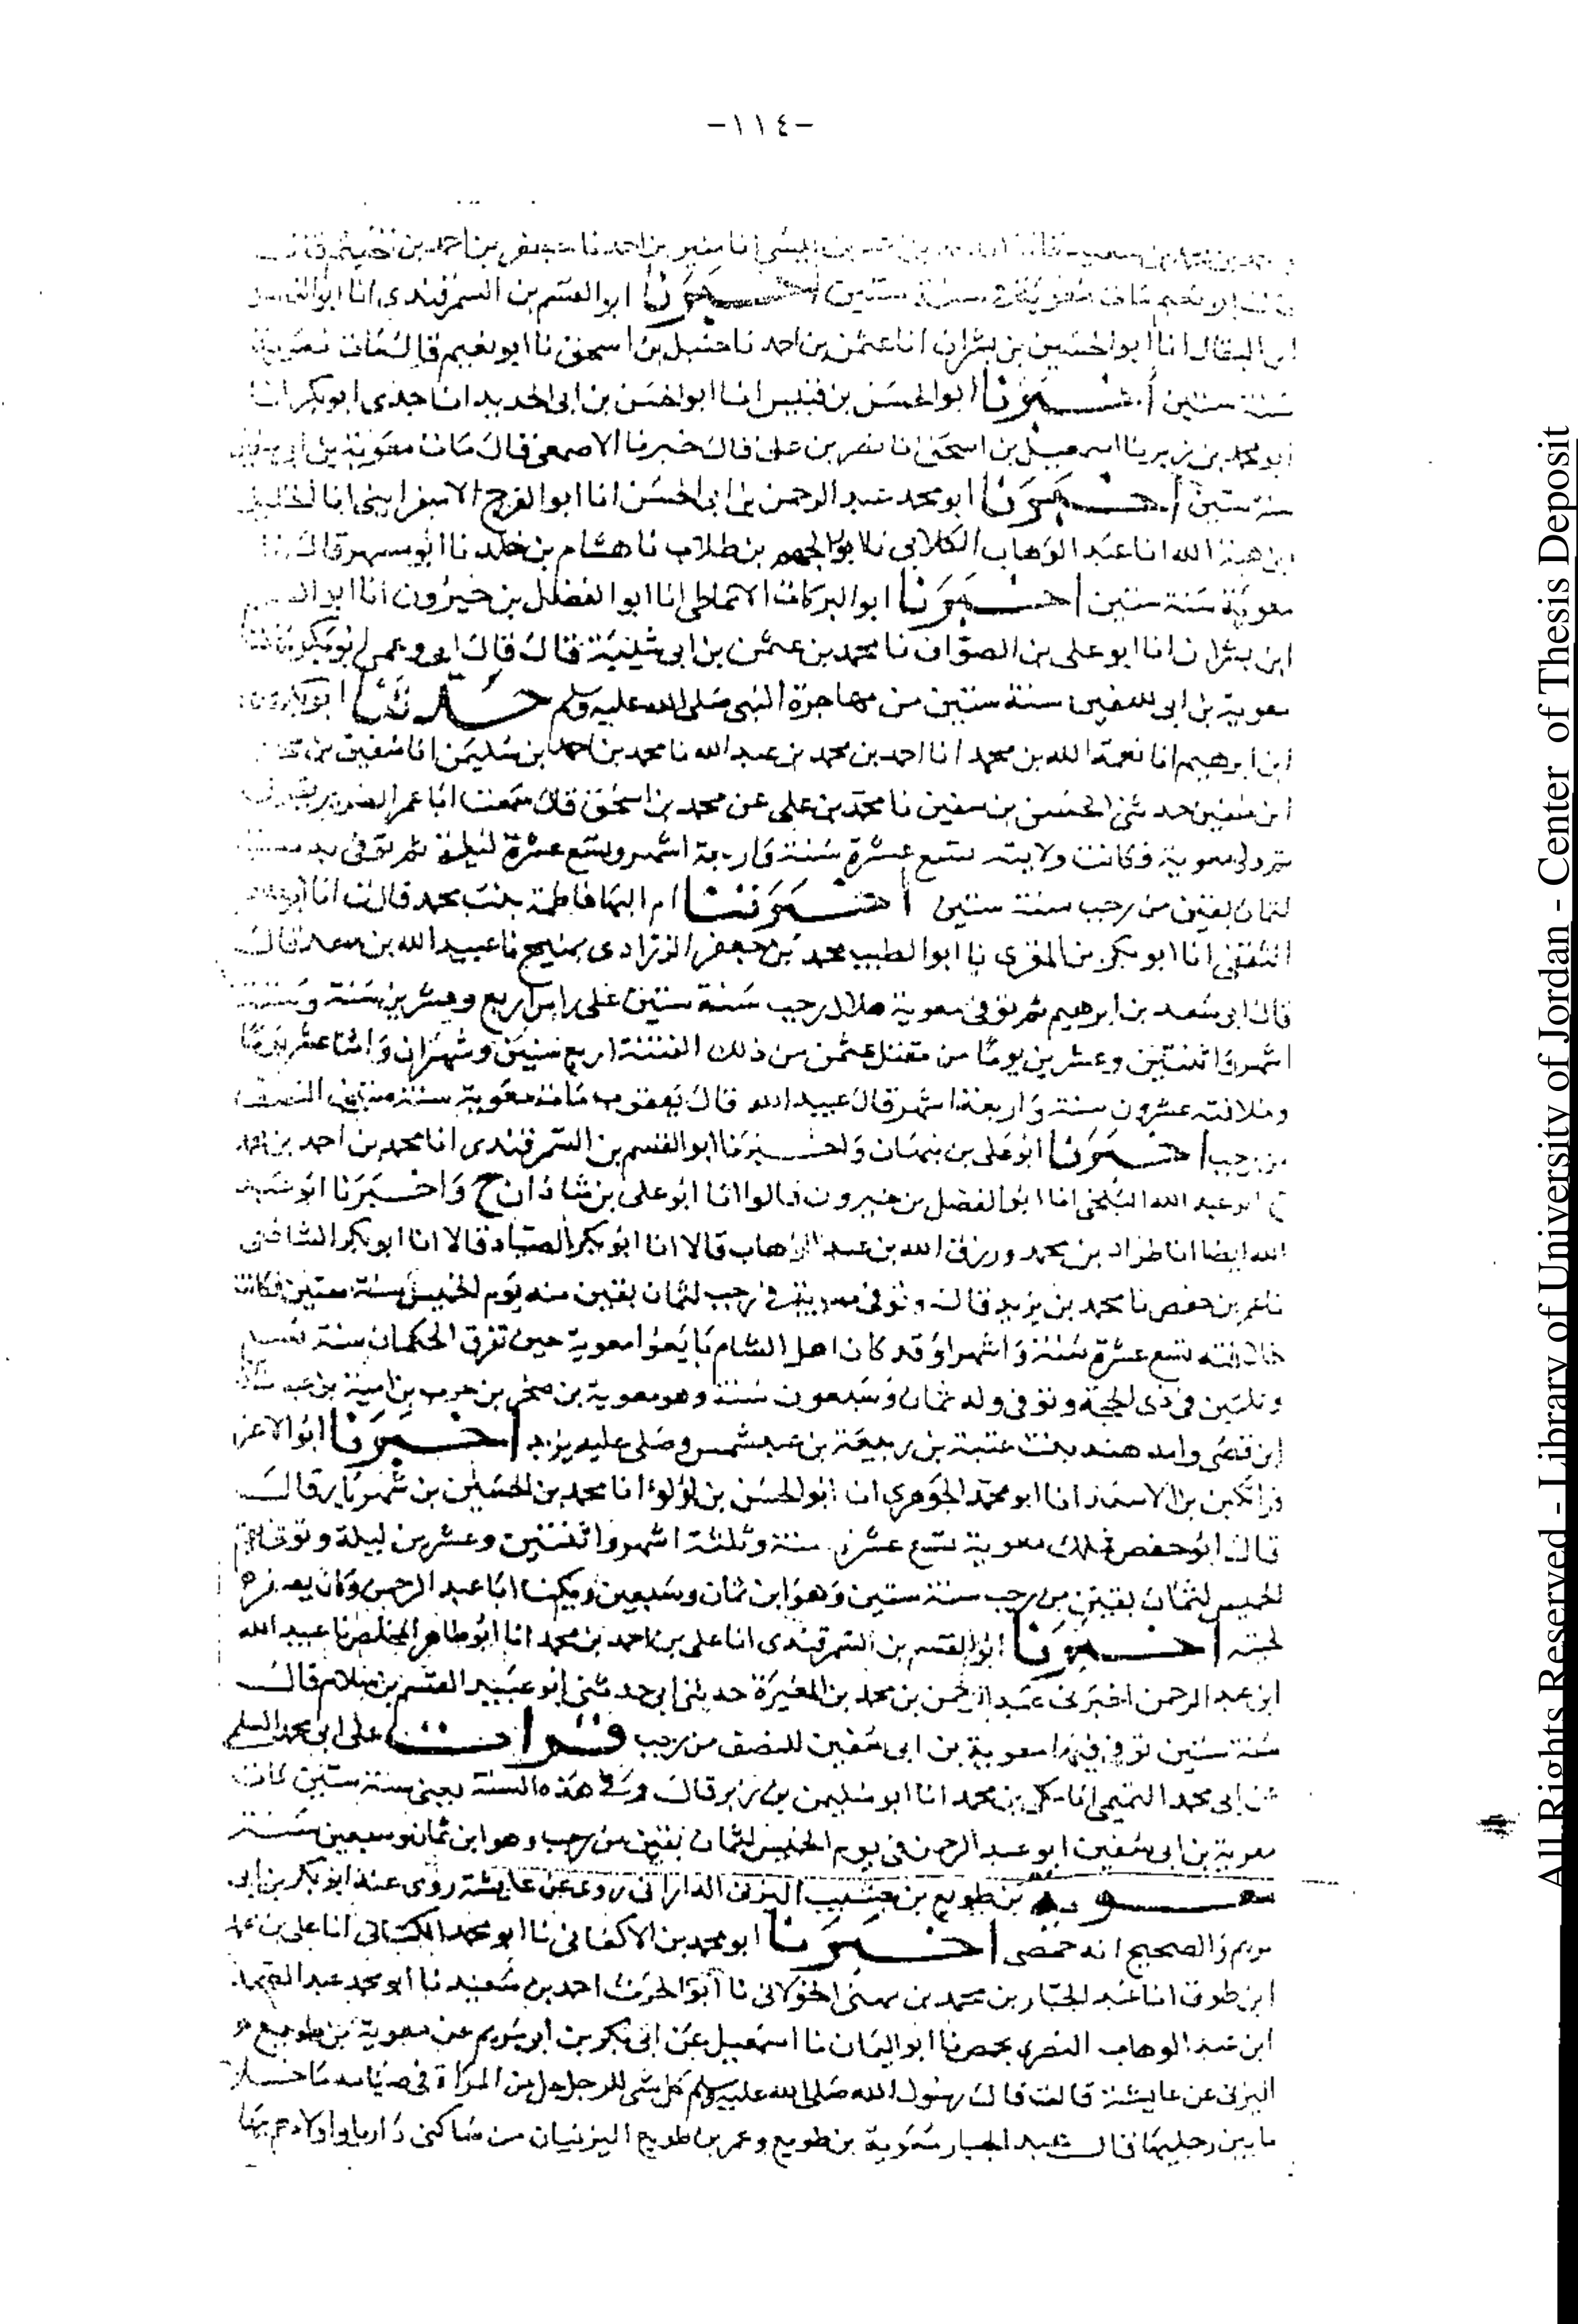 -١١٤-
انا منير بن احمد نا جعفر بن احمد بن
ابو نعيم مات معوية في سنة ستين اخبرنا ابو القسم بن السمرقندي انا ابو
ابن البقال انا ابو الحسين بن بشران انا عثمن بن احمد نا حنبل بن اسحق نا ابو نعيم قال مات معوية
سنة ستين اخبرنا ابو الحسن بن قبيس انا ابو الحسن بن ابي الحديد انا جدي ابو بكر انا
ابو محمد بن زبر نا اسمعيل بن اسحق نا نصر بن على قال خبرنا الاصمعى قال مات معوية بن ابي سفين
سنة ستين اخبرنا ابو محمد عبد الرحمن بن ابي الحسن انا ابو الفرج الاسفرايني انا الخليل
بن هبة الله انا عبد الوهاب الكلابي نا ابو الجهم بن طلاب نا هشام بن خلد نا ابو مسهر قال
معوية سنة ستين اخبرنا ابو البركات الانماطي انا ابو الفضل بن خيرون انا ابو
ابن بشران انا ابو علي بن الصواف نا محمد بن عثمن بن ابي شيبة قال قال ابي وعمي ابو بكر
معوية بن ابي سفين سنة ستين من مهاجرة النبي صلى الله عليه وسلم حدثنا ابو بكر
ابن ابرهيم انا نعمة الله بن محمد انا احمد بن محمد بن عبد الله نا محمد بن احمد بن سليمن انا سفين بن
ابن سفين حدثني الحسن بن سفين نا محمد بن علي عن محمد بن اسحق قال سمعت ابا عمر الضرير يقول
ثم ولي معوية فكانت ولايته تسع عشرة سنة واربعة اشهر وتسع عشرة ليلة ثم توفي
لثمان بقين من رجب سنة ستين اخبرتنا ام البها فاطمة بنت محمد قالت انا ابو
الثقفي انا ابو بكر بن المقرئ نا ابو الطيب محمد بن جعفر الزرادي بمنبج نا عبيد الله بن سعد قال
قال ابي سعد بن ابرهيم ثم توفي معوية هلال رجب سنة ستين على راس اربع وعشرين سنة وستة
اشهر واثنتين وعشرين يوما من مقتل عثمن من ذلك الفتنة اربع سنين وشهران واثنا عشر يوما
وخلافته عشرون سنة واربعة اشهر قال عبيد الله قال يعقوب مات معوية سنة ستين في النصف
من رجب اخبرنا ابو علي بن نبهان واخبرنا ابو القسم بن السمرقندي انا محمد بن احمد بن محمد
ح ابو عبد الله البلخي انا ابو الفضل بن خيرون قالوا انا ابو علي بن شاذان ح واخبرنا ابو عبد
الله ايضا انا طراد بن محمد ورزق الله بن عبد الوهاب قالا انا ابو بكر الصياد قالا انا ابو بكر الشافعي
نا عمر بن حفص نا محمد بن يزيد قال وتوفي معوية في رجب لثمان بقين منه يوم الخميس سنة ستين فكانت
خلافته تسع عشرة سنة واشهرا وقد كان اهل الشام بايعوا معوية حين تفرق الحكمان سنة
وثلثين في ذي الحجة وتوفي وله ثمان وسبعون سنة وهو معوية بن صخر بن حرب بن امية بن عبد مناف
ابن قصي وامه هند بنت عتبة بن ربيعة بن عبد شمس وصلى عليه يزيد اخبرنا ابو الاعز
قراتكين بن الاسعد انا ابو محمد الجوهري انا ابو الحسن بن لؤلوء انا محمد بن الحسين بن شهريار قال
قال ابو حفص ملك معوية تسع عشرة سنة وثلثة اشهر واثنتين وعشرين ليلة وتوفي
الخميس لثمان بقين من رجب سنة ستين وهو ابن ثمان وسبعين ويكنا ابا عبد الرحمن وكان يصفر
لحيته اخبرنا ابو القسم بن السمرقندي انا علي بن احمد بن محمد انا ابو طاهر المخلص نا عبيد الله
ابن عبد الرحمن اخبرني عبد الرحمن بن محمد بن المغيرة حدثني ابي حدثني ابو عبيد القسم بن سلام قال
سنة ستين توفي فيها معوية بن ابي سفين للنصف من رجب قرات على ابي محمد السلمي
عن ابي محمد التميمي انا مكي بن محمد انا ابو سليمن بن زبر قال وفي هذه السنة يعني سنة ستين مات
معوية بن ابي سفين ابو عبد الرحمن في يوم الخميس لثمان بقين من رجب وهو ابن ثمان وسبعين سنة
معوية بن طويع بن جشيب اليزني الداراني روى عن عايشة روى عنه ابو بكر بن ابي
مريم والصحيح انه حمصي اخبرنا ابو محمد بن الاكفاني نا ابو محمد الكتاني انا علي بن محمد
ابن طوق انا عبد الجبار بن محمد بن مهنى الخولاني نا ابو الحرث احمد بن سعيد نا ابو محمد عبد الصمد
ابن عبد الوهاب النصري بحمص نا ابو اليمان نا اسمعيل عن ابي بكر بن ابي مريم عن معوية بن طويع
اليزني عن عايشة قالت قال رسول الله صلى الله عليه وسلم كل شى للرجل حل من المراة في صيامه ما خلا
ما بين رجليها قال عبد الجبار معوية بن طويع وعمر بن طويع اليزنيان من ساكني داريا واولادهم بها
All Rights Reserved - Library of University of Jordan - Center of Thesis Deposit